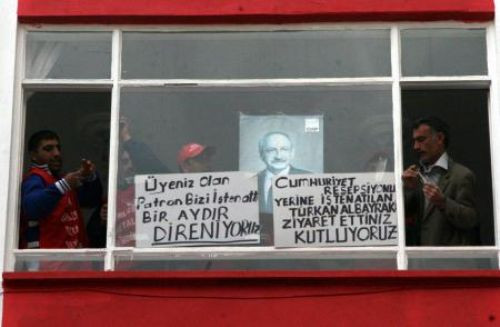 CHP
Üyeniz Olan
Patron Bizi İşten attı
BİR AYDIR
DİRENİYORUZ
CUMHURİYET RESEPSİYONU
YERİNE İŞTEN ATILAN
TÜRKAN ALBAYRAK'I
ZİYARET ETTİNİZ
KUTLUYORUZ